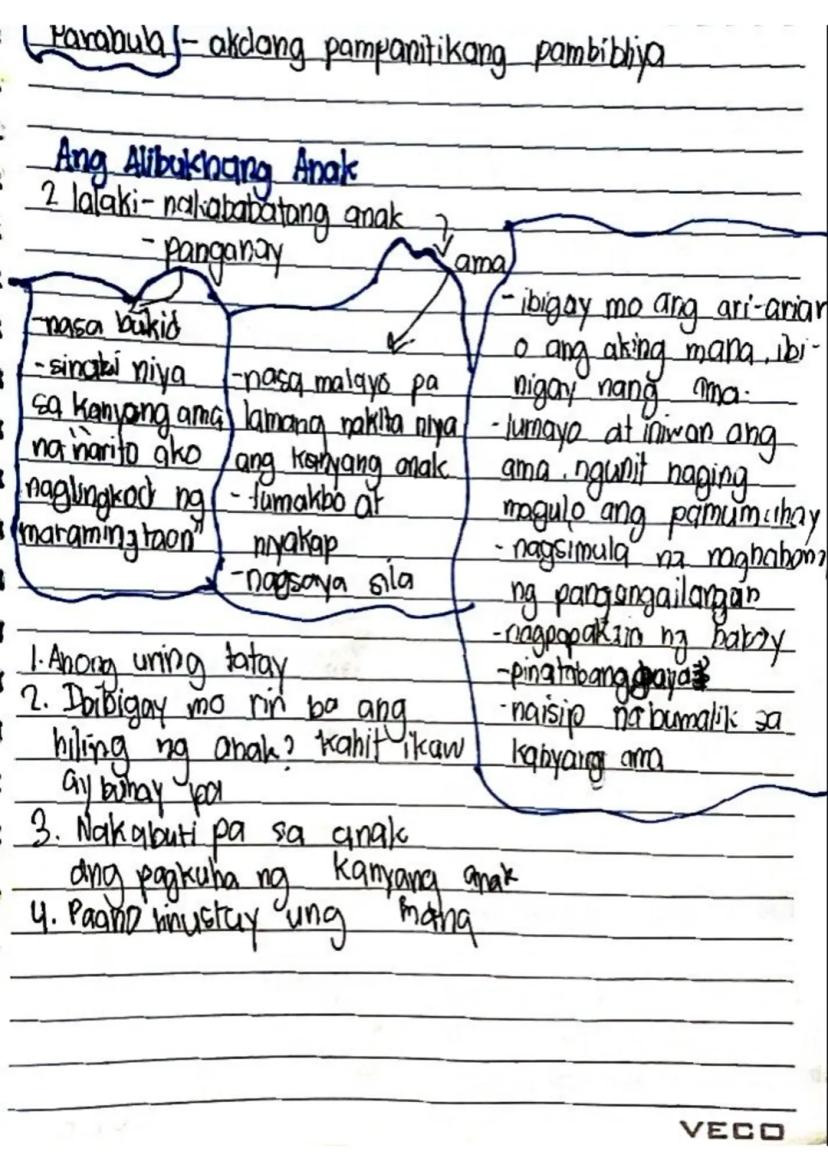 Parabula - akdang pampanitikang pambibliya
Ang Alibukhang Anak
2 lalaki - nakababatang anak
- panganay
ama
-nasa bukid
-sinabi niya
sa kanyang ama
na "narito ako
naglingkod ng
maraming taon"
-nasa malayo pa
lamang nakita niya
ang kanyang anak
- tumakbo at
niyakap
-nagsaya sila
-ibigay mo ang ari-arian
o ang aking mana, ibi-
nigay nang ama.
-lumayo at iniwan ang
ama, ngunit naging
magulo ang pamumuhay
- nagsimula na maghahon
ng pangangailangan
-nagpapakain ng baboy
-pinatabang
-naisip na bumalik sa
kanyang ama
1. Anong uring tatay
2. Ibibigay mo rin ba ang
hiling ng anak? kahit ikaw
ay buhay pa
3. Nakabuti pa sa anak
ang pagkuha ng kanyang anak
4. Paano hinustay ung mana
VECO